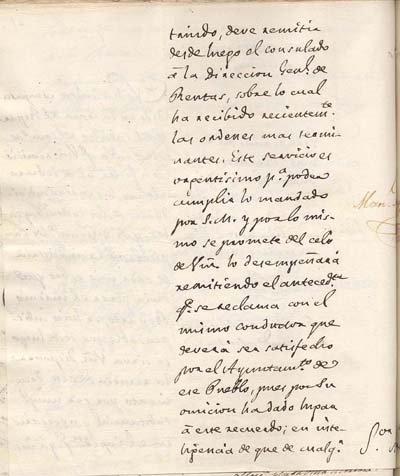 truido, deve remitir
desde luego el consulado
a la Direccion Genl. de
Rentas, sobre lo cual
ha recibido recientemte.
las ordenes mas termi-
nantes. Este servicio es
urgentisimo pa. poder
cumplir lo mandado
por S.M. y por lo mis-
mo se promete del celo
de Vm. lo desempeñará
remitiendo el anteced.te
qe. se reclama con el
mismo conductor que
deverá ser satisfecho
por el Ayuntamto. de
ese Pueblo, pues por su
omision ha dado lugar
a este recuerdo; en inte-
ligencia de que de cualqa.
Man.